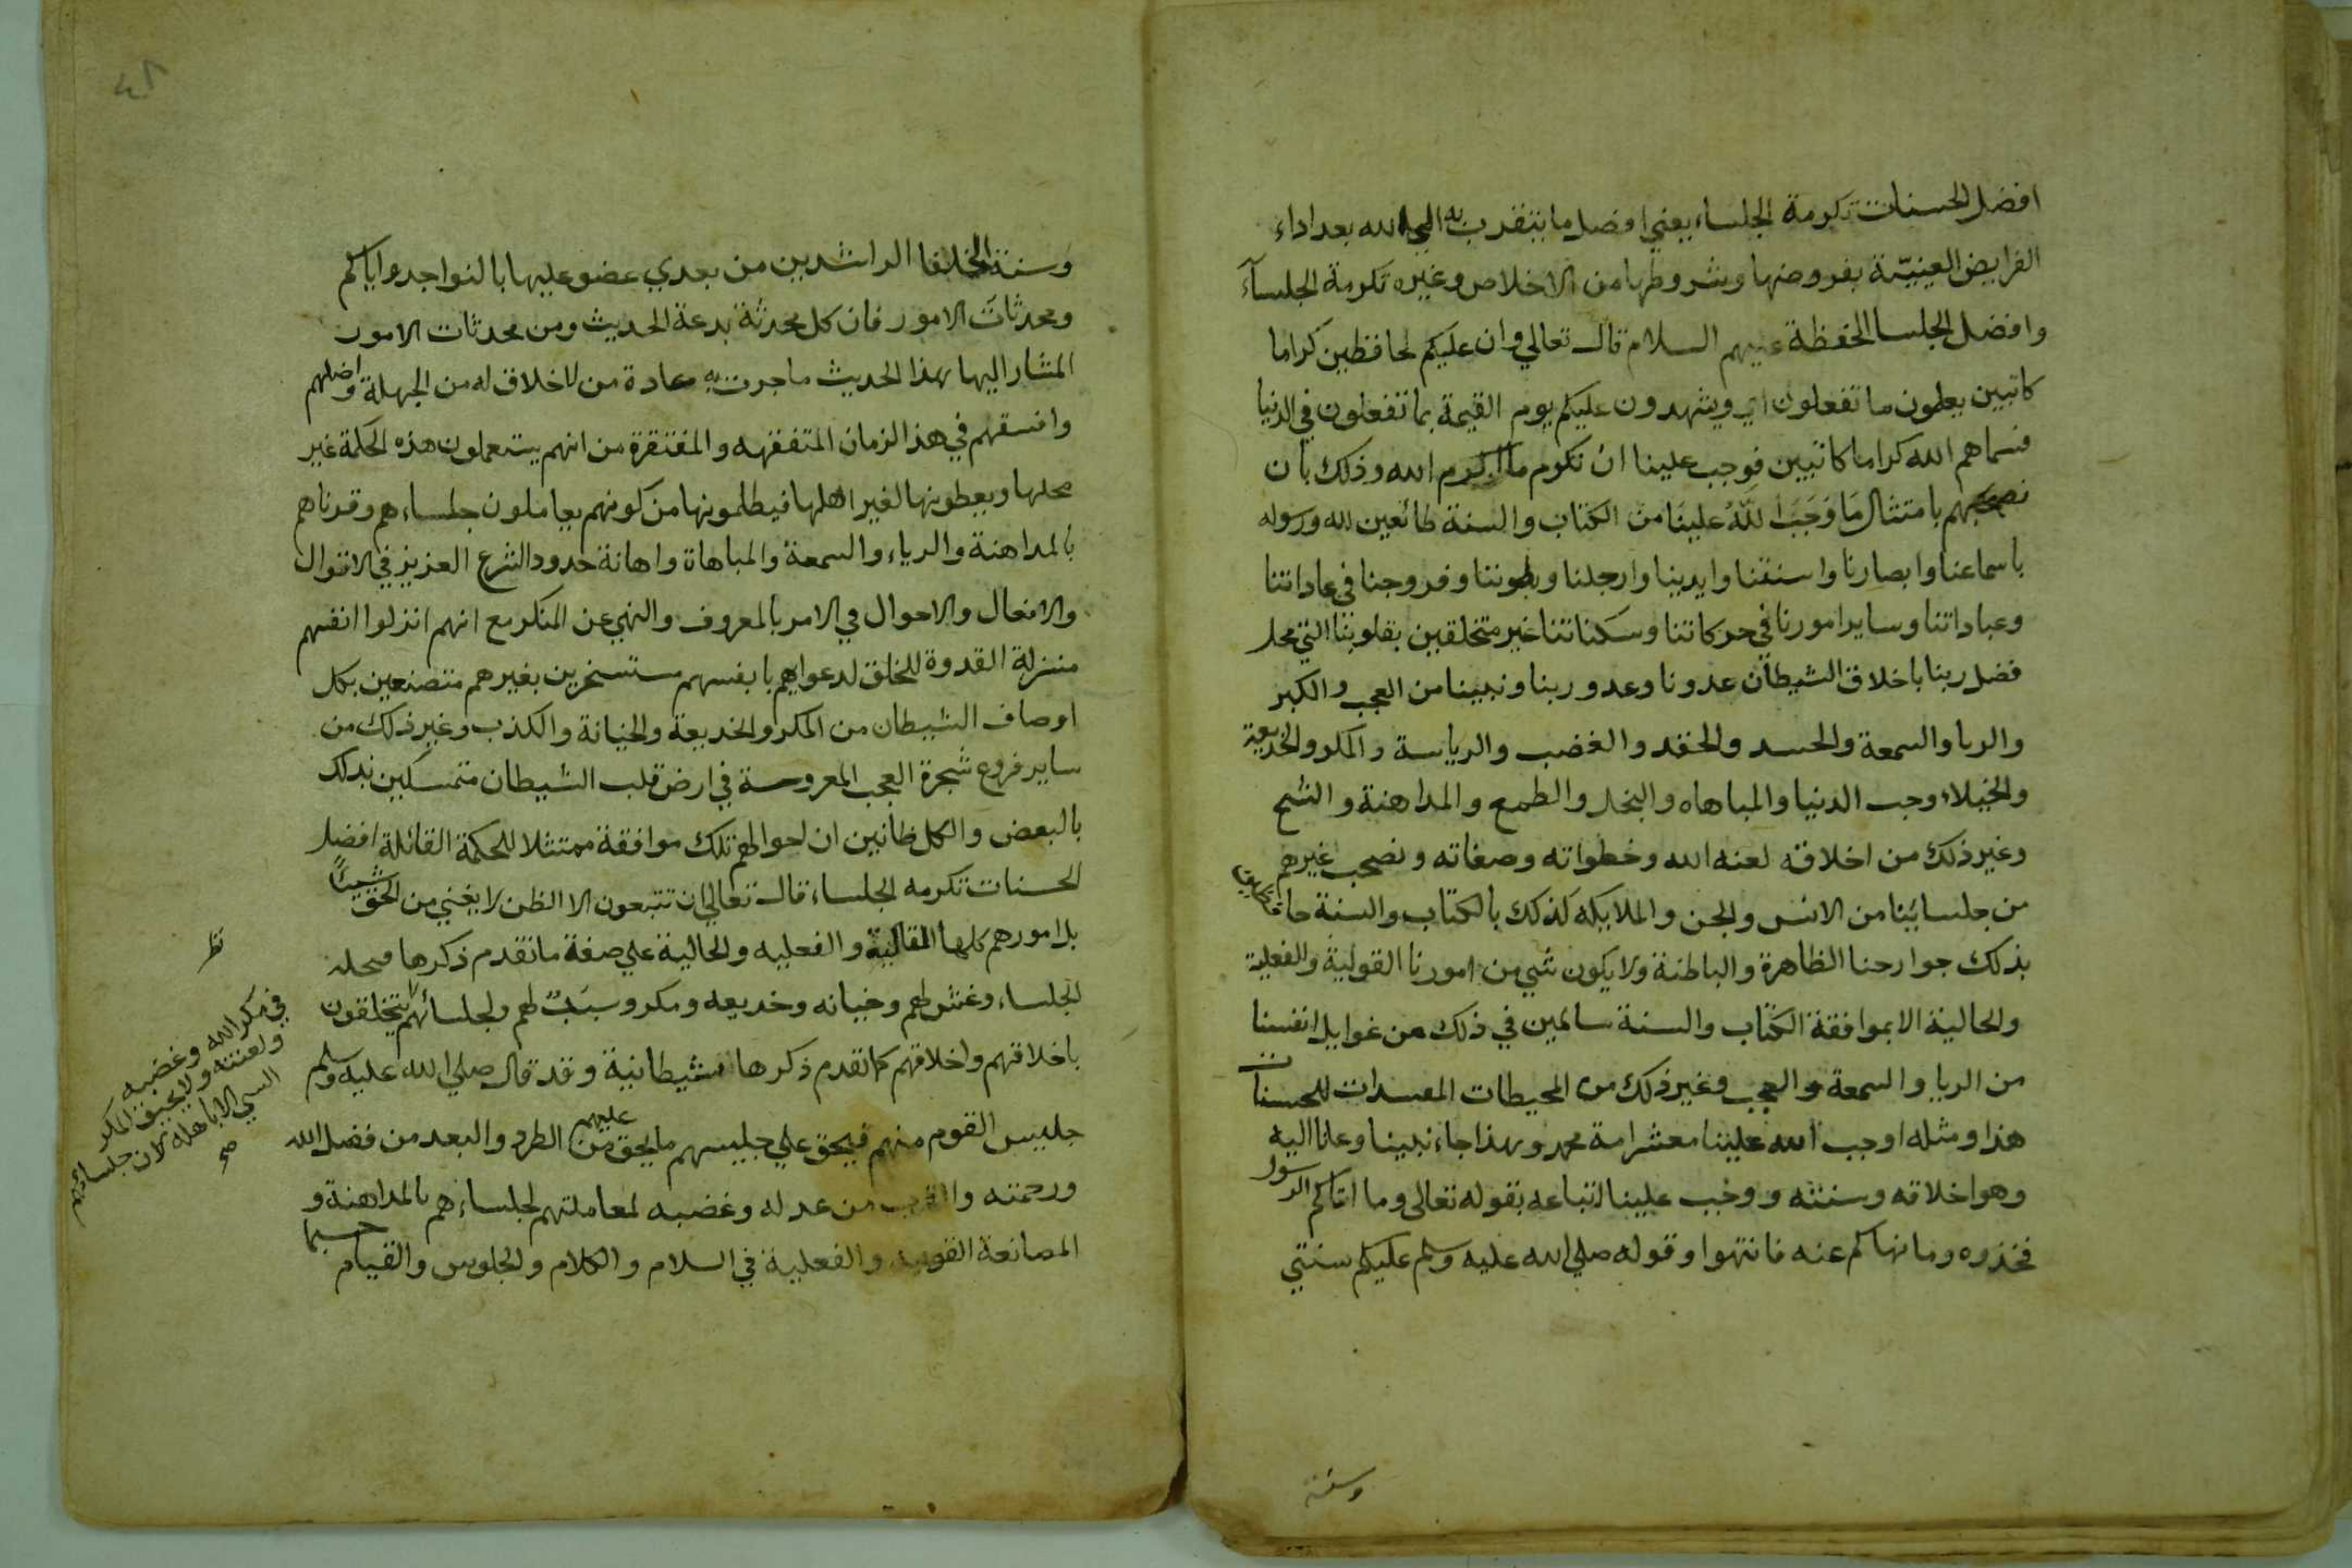 افضل الحسنات تكرمة الجلساء يعني افضل ما يتقرب به الي الله بعد اداء
الفرايض العينيّة بفروضها وشروطها من الاخلاص وغيره تكرمة الجلسآء
وافضل الجلسا الحفظة عليهم السلام قال تعالي وان عليكم لحافظين كراما
كاتبين يعلمون ما تفعلون اي ويشهدون عليكم يوم القيمة بما تفعلون في الدنيا
فسماهم الله كراما كاتبين فوجب علينا ان نكرم ما اكرم الله وذلك بان
نصحبهم بامتثال مَا وَجَبَ اللّهُ علينَا من الكتاب والسنة طائعين لله ورسوله
باسماعنا وابصارنا والسنتنا وايدينا وارجلنا وبطوننا وفروجنا في عاداتنا
وعباداتنا وساير امورنا في حركاتنا وسكناتنا غير متخلقين بقلوبنا التي محل
فضل ربنا باخلاق الشيطان عدونا وعدو ربنا ونبينا من العجب والكبر
والريا والسمعة والحسد والحقد والغضب والرياسة والمكر والخديعة
والخيلاء وحب الدنيا والمباهاه والبخل والطمع والمداهنة والشح
وغير ذلك من اخلاقه لعنه الله وخطواته وصفاته ونصحب غيرهم
من جلسائنا من الانس والجن والملايكه كذلك بالكتاب والسنة
بذلك جوارحنا الظاهرة والباطنة ولا يكون شي من امورنا القولية والفعلية
والحالية الا بموافقة الكتاب والسنة سالمين في ذلك من غوايل انفسنا
من الريا والسمعة والعجب وغير ذلك من المحيطات المفسدات للحسنات
هذا ومثله اوجب الله علينا معشر امة محمد وبهذا جاء نبينا ودعانا اليه
وهو اخلاقه وسنته ووجب علينا اتباعه بقوله تعالى وما اتاكم الرسول
فخذوه وما نهاكم عنه فانتهوا وقوله صلي الله عليه وسلم عليكم سنتي
وسنة
٤٨
وسنة الخلفا الراشدين من بعدي عضو عليها بالنواجد واياكم
ومحدثات الامور فان كل محدثة بدعة الحديث ومن محدثات الامور
المشار اليها بهذا الحديث ما جرت به عادة من لا خلاق له من الجهلة واضلهم
وافسقهم في هذا الزمان المتفقهه والمفتقرة من انهم يستعملون هذه الحكمة غير
محلها ويعطونها لغير اهلها فيظلمونها من كونهم يعاملون جلساءهم وقرناهم
بالمداهنة والرياء والسمعة والمباهاة واهانة حدود الشرع العزيز في الاقوال
والافعال والاحوال في الامر بالمعروف والنهي عن المنكر مع انهم انزلوا انفسهم
منزلة القدوة للخلق لدعواهم بانفسهم مستسخرين بغيرهم متصنعين بكل
اوصاف الشيطان من المكر والخديعة والخيانة والكذب وغير ذلك من
ساير فروع شجرة العجب المغروسة في ارض قلب الشيطان متمسكين بذلك
بالبعض والكل ظانين ان احوالهم تلك موافقة ممتثلا للحكمة القائلة افضل
الحسنات تكرمه الجلساء قال تعالي ان تتبعون الا الظن لا يغني من الحق شيئًا
بل امورهم كلها المقالية والفعليه والحالية علي صفة ما تقدم ذكرها
الجلساء وغش لهم وخيانه وخديعه ومكر وسبَبٌ لهم ولجلسائهم يتخلقون
باخلاقهم واخلاقهم كما تقدم ذكرها شيطانية وقد قال صلي الله عليه وسلم
جليس القوم منهم فيحق علي جليسهم ما يحق عليهم من الطرد والبعد من فضل الله
ورحمته والقرب من عدله وغضبه لمعاملتهم لجلساءهم بالمداهنة و
المصانعة القوليه والفعلية في السلام والكلام والجلوس والقيام حسبما
في مكر الله وغضبه
ولعنته ولا يحيق المكر
السي الا باهله لان جلسائهم
صح